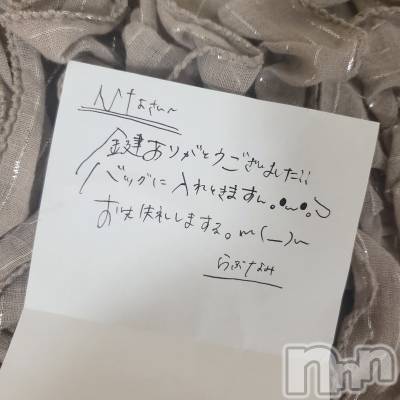 鍵ありがとうございました!!
バッグに入れときますん。
お先失礼しまする。m(_)m
らぶなみ
nnn